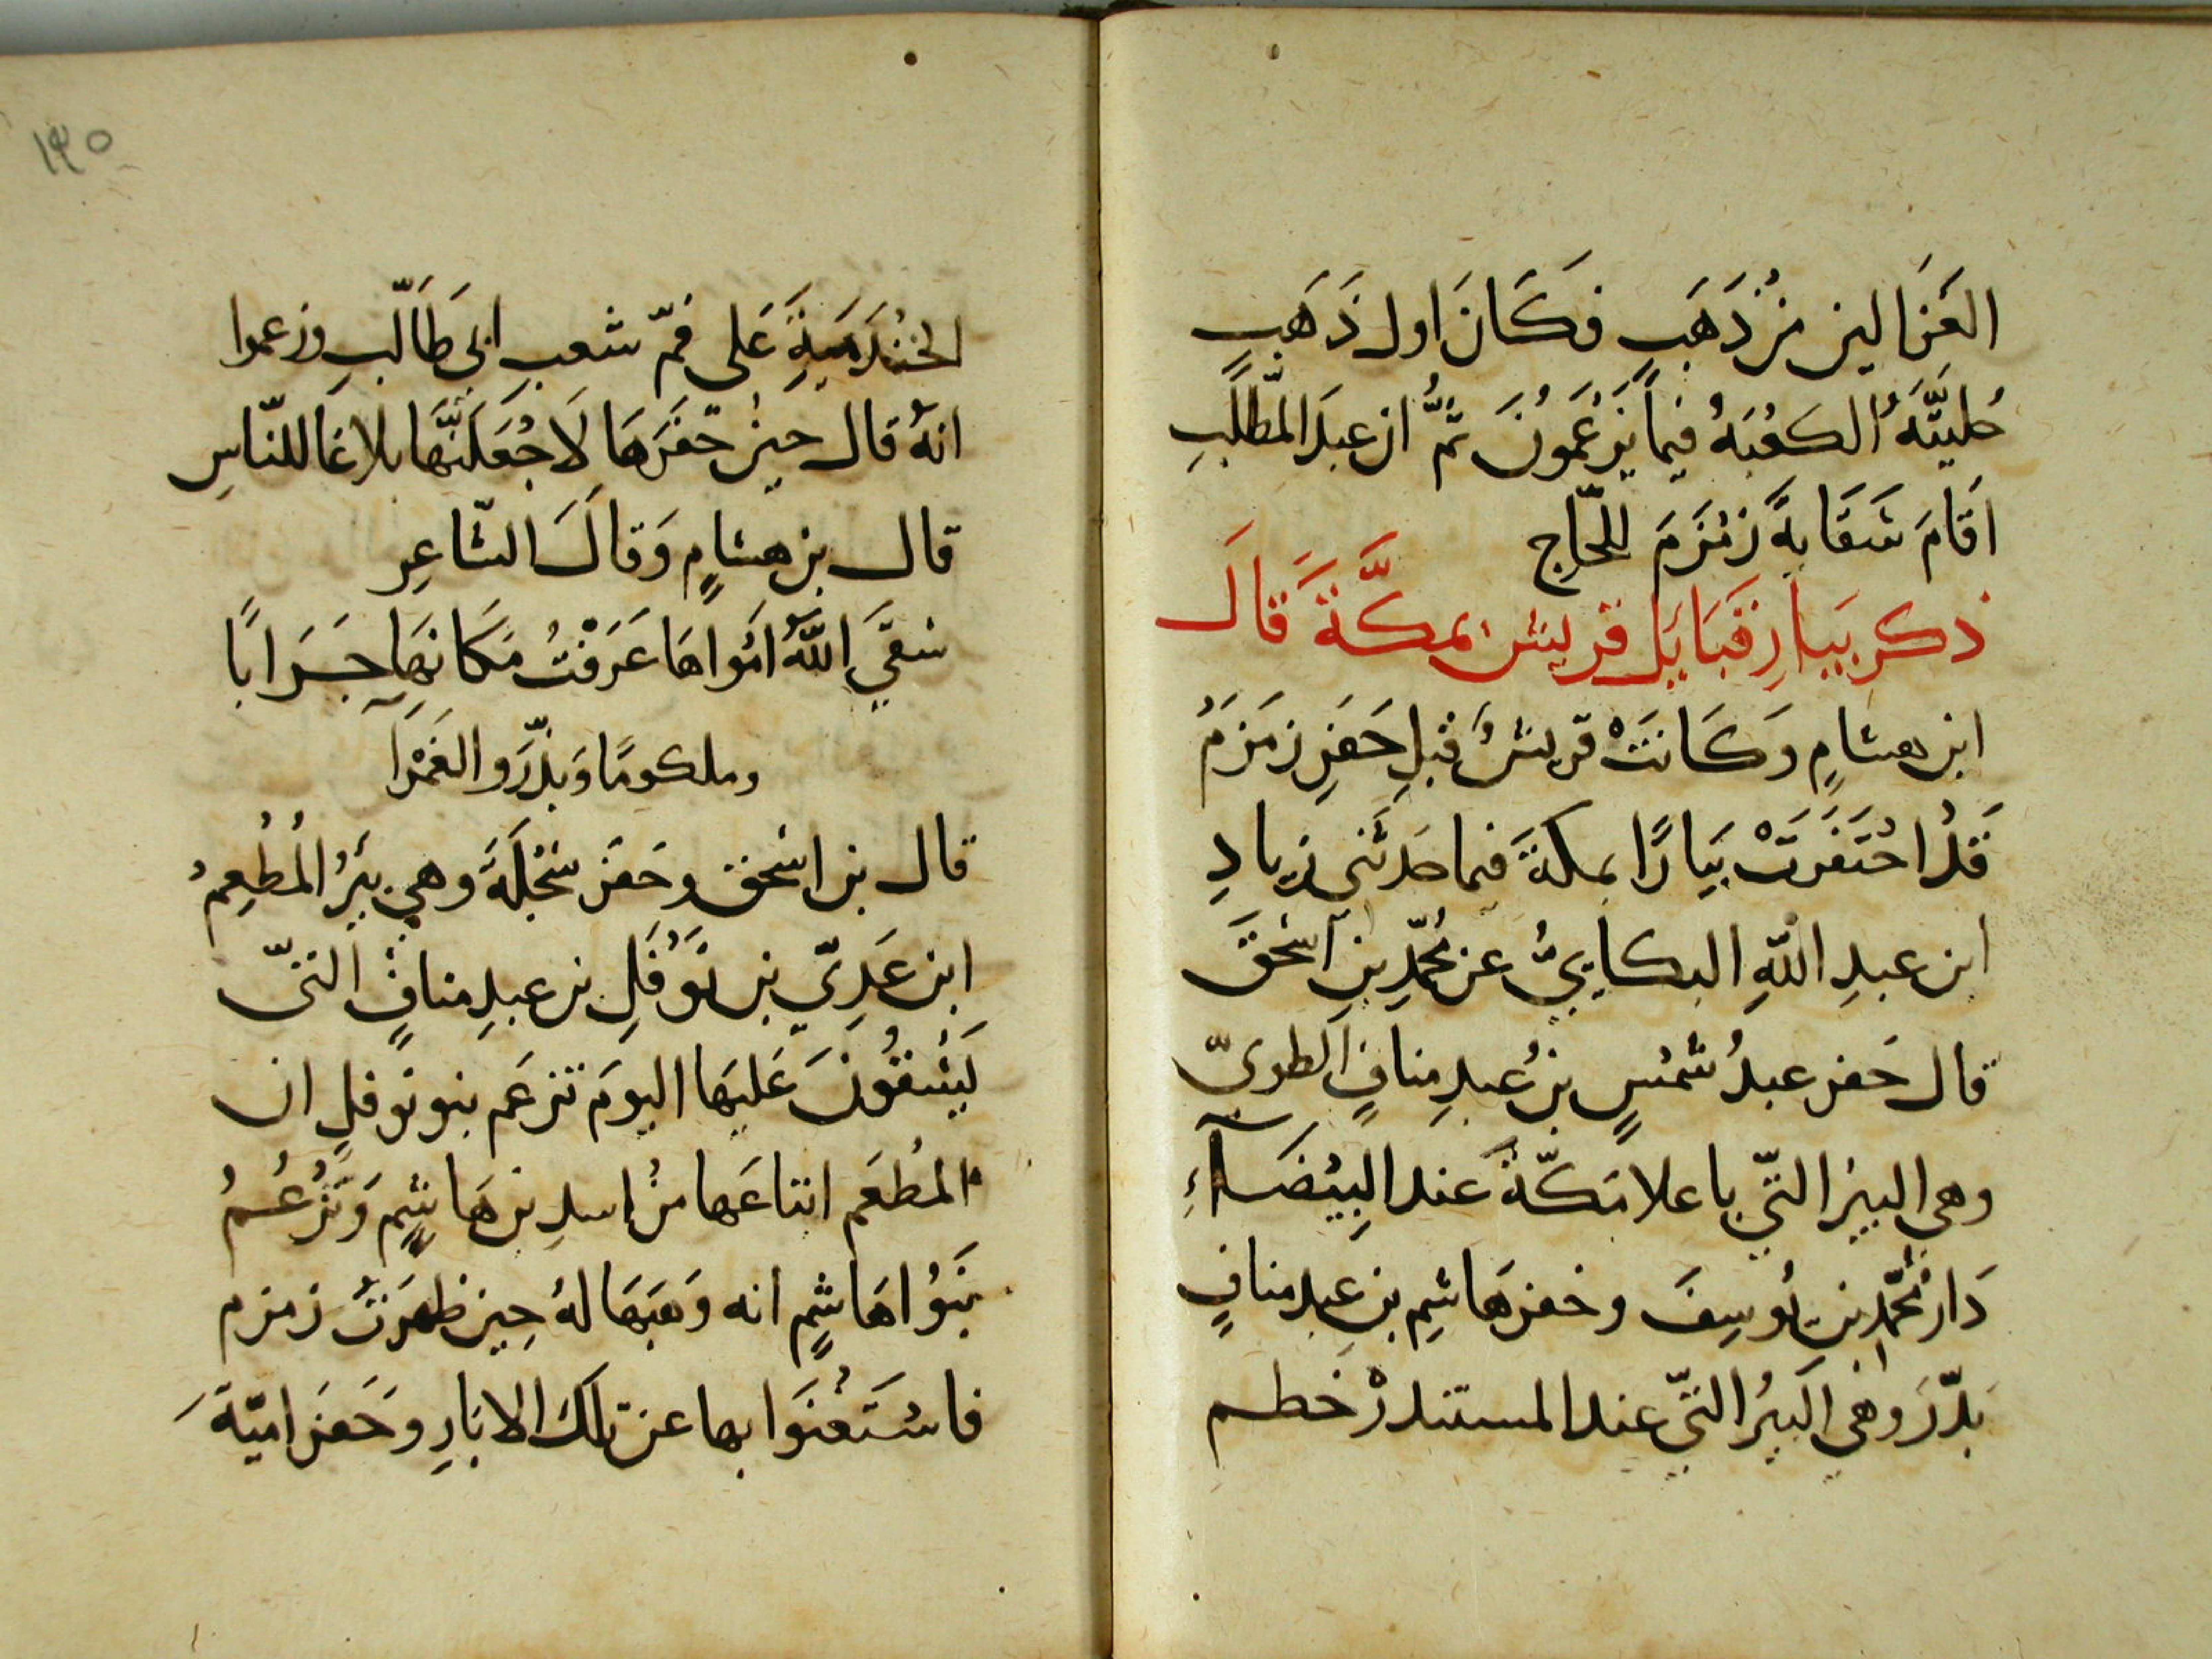 الغَزَالين مزْ ذَهَبٍ فَكَانَ اول ذَهَبٍ
حُليَّتَهُ الكَعْبَهُ فيمَا يَزعَمُونَ ثمَّ ان عبدَ المطّلبِ
اَقَامَ سَقَايةَ زَمْزَمَ للحّاج
ذكر بيارِ قبَايَل قريش بمكَّةَ قَالَ
ابن هشامٍ وَكَانَتْ قريشُ قبلِ حَفرِ زَمزَمُ
قَدْ احُتَفَرَتْ بيَارًا بمكةَ فيما حَدثَني زياد
ابن عبدِ اللّهِ البكاييُّ عن محمّدِ بنِ اسْحقَ
قال حَفر عبدُ شمْسٍ بنُ عبدِ منافٍ الطويّ
وهي البيرُ التّي باعلا مَكّةَ عند البِيْضَآءِ
دَار محمّد بن يُوسِفَ وحفر هَاشِم بن عبدِ منافٍ
بَدّرَ وهْي البيرُ التيّ عند المستندرْ خطم
الخنْدَمَيةِ عَلى فمّ شعب ابي طَالّبِ وزعموا
انهُ قال حينْ حَفَرَهَا لَاجْعَلنَّهَا بلاغا للنّاسِ
قال بن هشامٍ وَقَالَ الشّاعِر
سَقيَ اللّهُ امْوَاهَا عَرَفْتُ مَكَانهَا جَرَابًا
وملكومًا وَبذّرَ والغَمْرَا
قال بن اسْحق وحَفَر سَجْلَةَ وهي بيَرُ المُطْعِمُ
ابن عَدِيّ بن نَوْفَلِ بن عبدِ منافٍ التيّ
يَسْقُونَ عَليهَا اليومَ تزعَم بنو نوفلِ ان
المطْعَم ابتاعَها منْ اسدِ بن هَاشِم وَتَزْعُمُ
بَنَوُا هَاشِمٍ انه وَهَبَهَا لهُ حِين ظهَرَتْ زمزم
فاسْتَغْنَوَا بها عن تلكَ الابَارِ وحَفَر اميّةَ
١٣٥